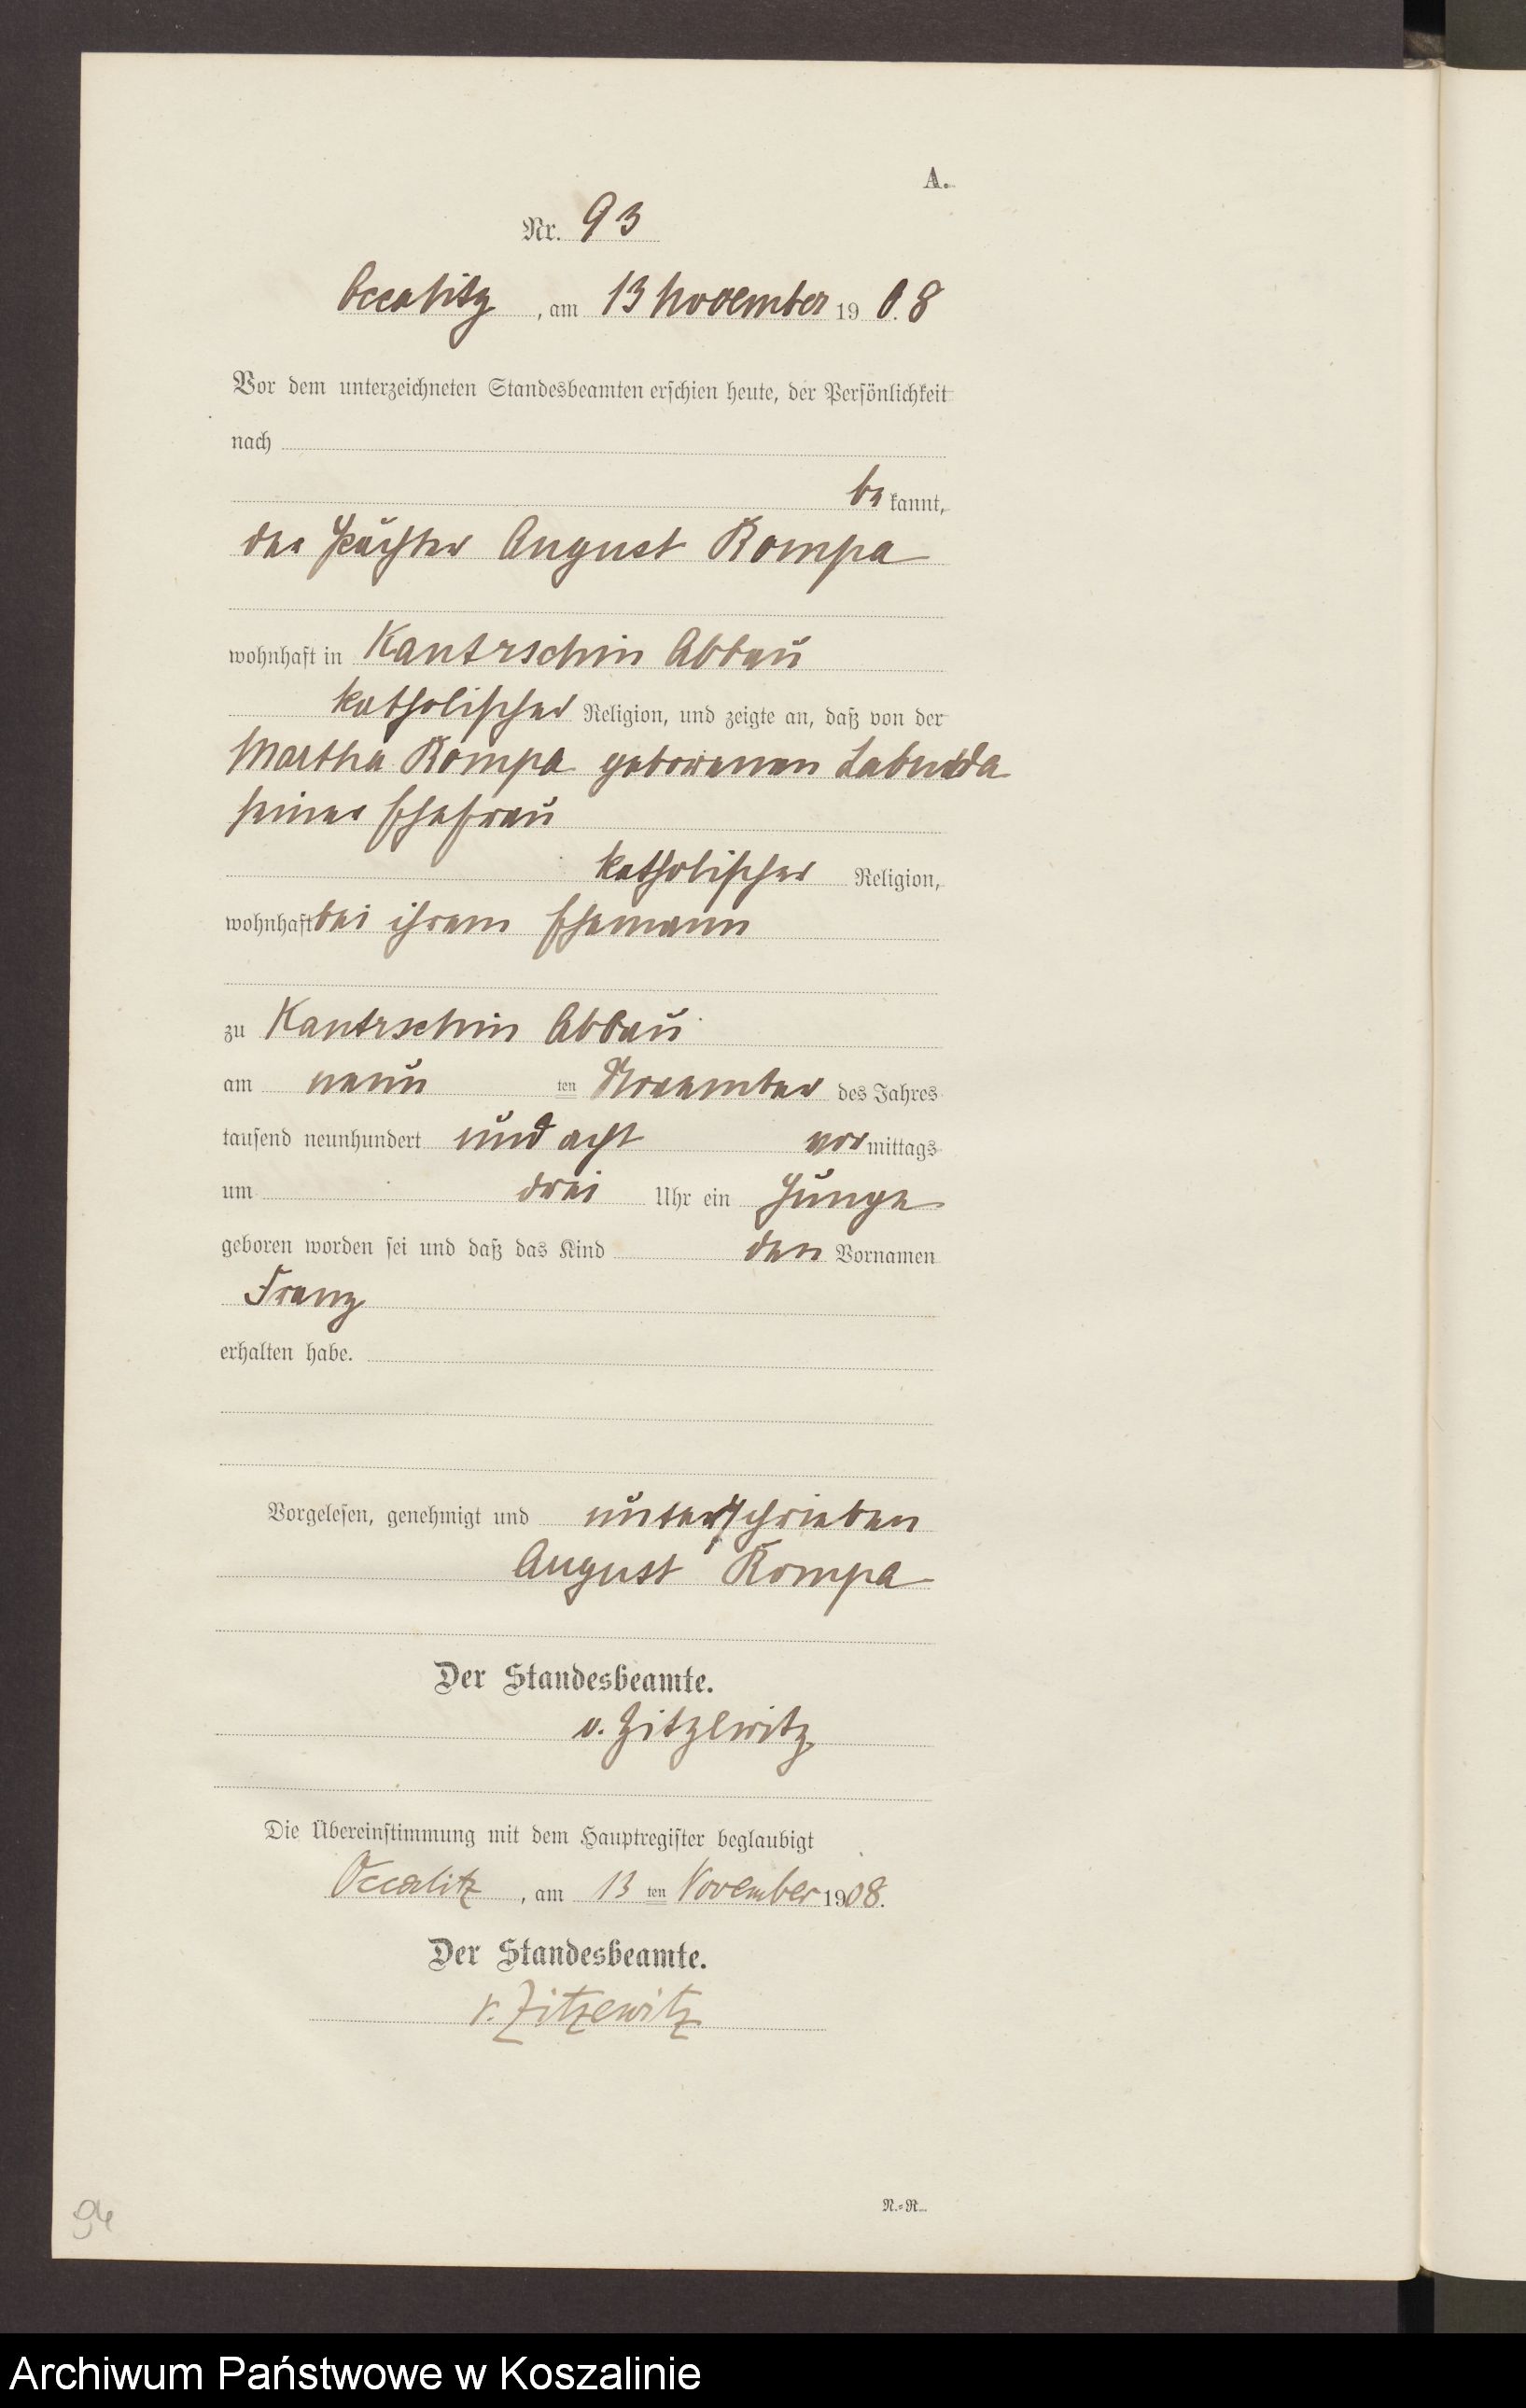 A.
Nr. 93
Occalitz, am 13 November 1908
Vor dem unterzeichneten Standesbeamten erschien heute, der Persönlichkeit
nach
bekannt,
der Pächter August Rompa
wohnhaft in Kantrschin Abbau
katholischer Religion, und zeigte an, daß von der
Martha Rompa geborenen Labudda
seiner Ehefrau
katholischer Religion,
wohnhaft bei ihrem Ehemann
zu Kantrschin Abbau
am neun ten November des Jahres
tausend neunhundert und acht vormittags
um drei Uhr ein Junge
geboren worden sei und daß das Kind den Vornamen
Franz
erhalten habe.
Vorgelesen, genehmigt und unterschrieben
August Rompa
Der Standesbeamte.
v. Zitzewitz
Die Übereinstimmung mit dem Hauptregister beglaubigt
Occalitz, am 13 ten November 1908.
Der Standesbeamte.
v. Zitzewitz
N.-R.
94
Archiwum Państwowe w Koszalinie